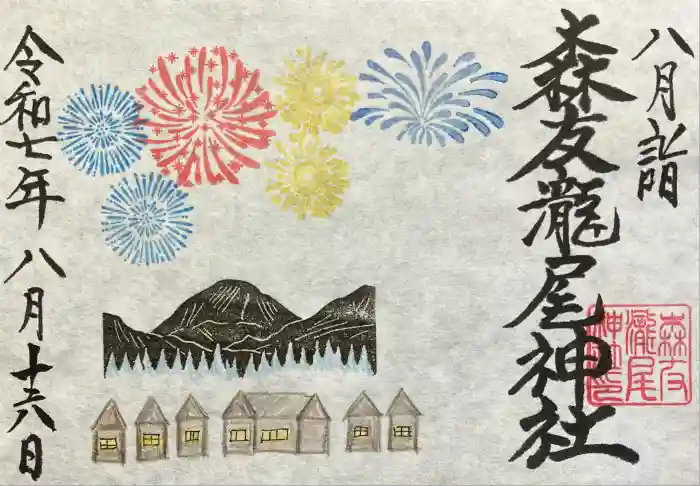 八月詣
森友瀧尾神社
森友
瀧尾
神社印
令和七年八月十六日